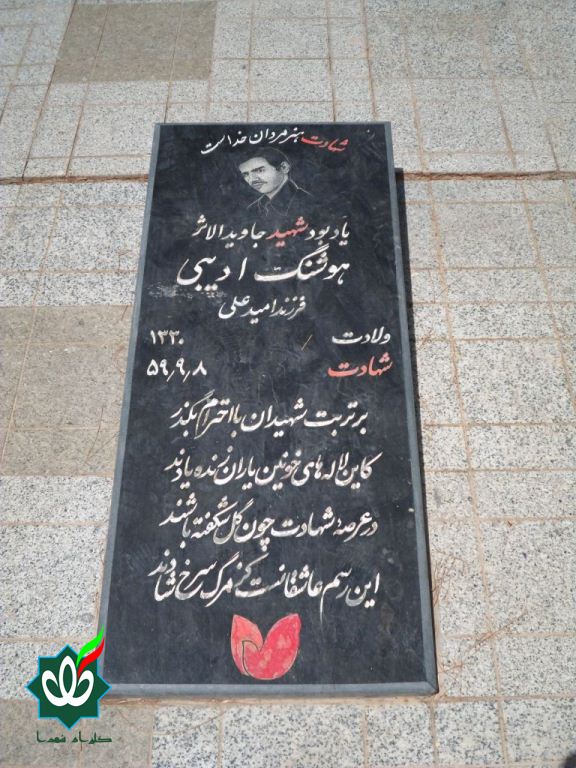 شهادت هنر مردان خداست
یادبود شهید جاویدالاثر
هوشنگ ادیبی
فرزند امیدعلی
ولادت ۱۳۳۰
شهادت ۵۹٫۹٫۸
بر تربت شهیدان با احترام بگذر
کاین لاله های خونین یاران زنده یادند
در عرصهٔ شهادت چون گل شکفته باشند
این رسم عاشقانست کز مرگ سرخ شادند
گلزار شهدا